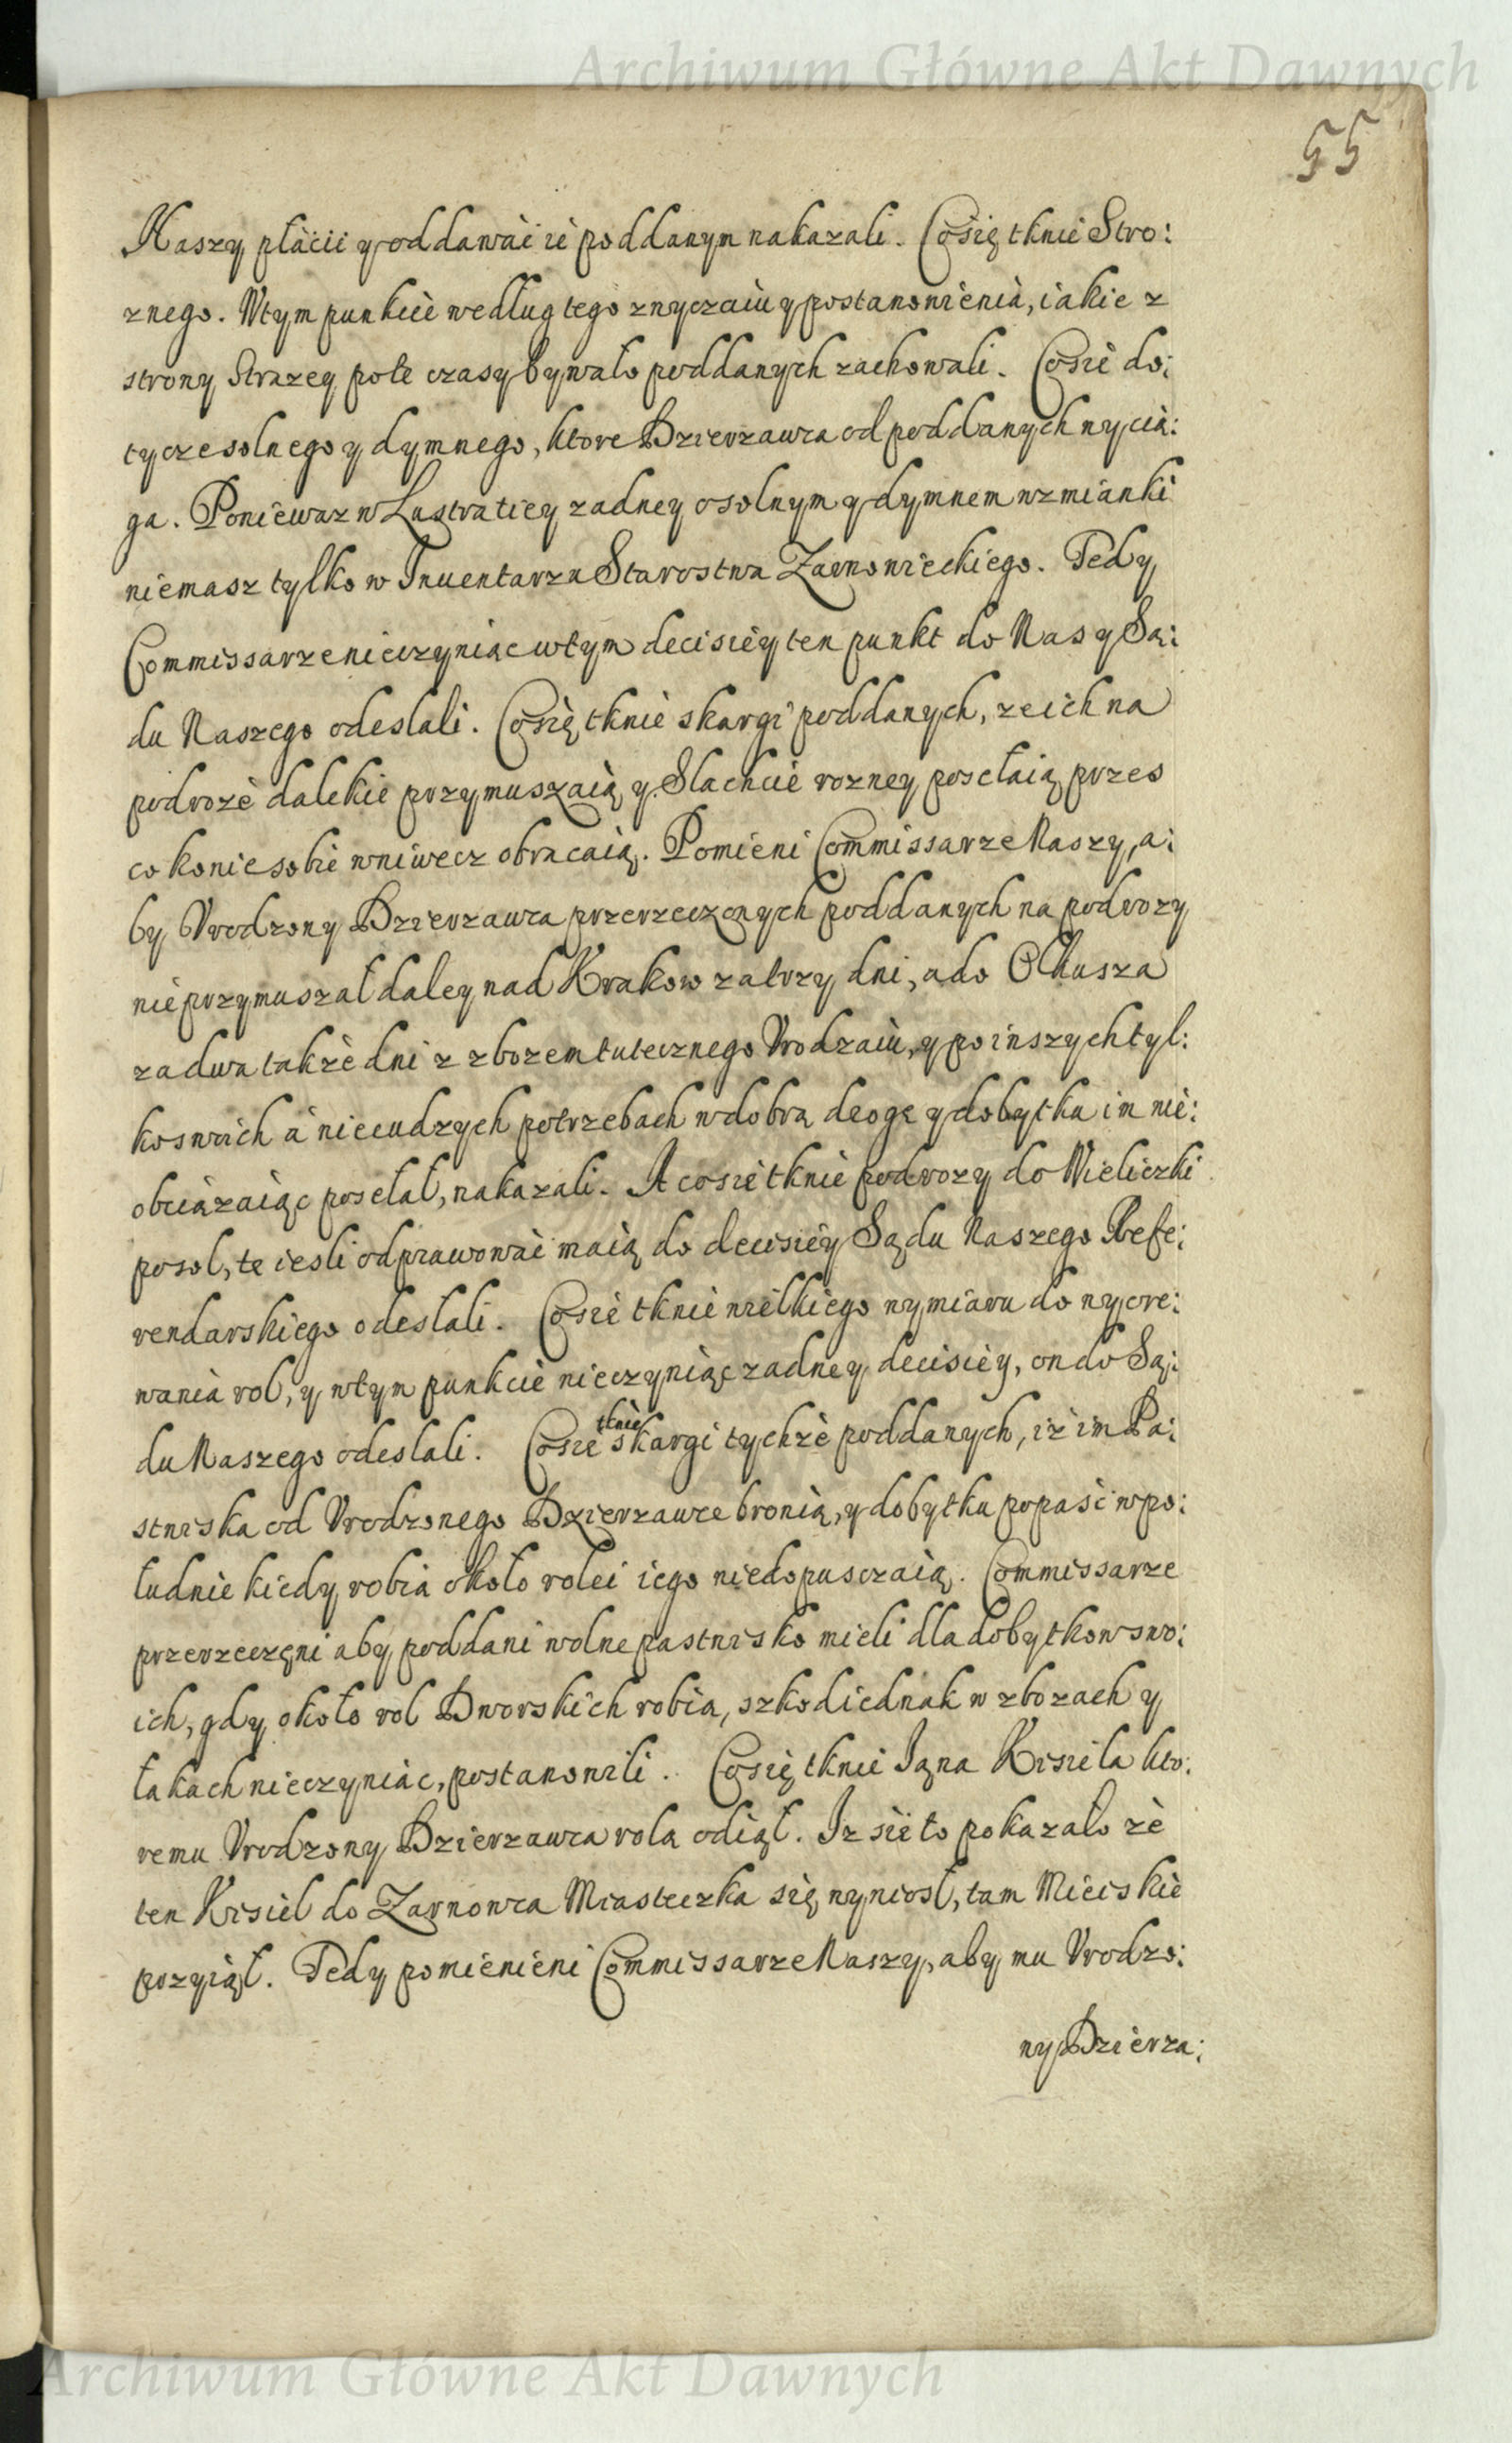 Archiwum Główne Akt Dawnych
55
Naszy płacic y oddawać ié poddanym nakazali. Cosię tknie Stro:
znego. Wtym punkcie według tego zwyczaiu y postanowienia, iakie z
strony Strazey pote czasy bywało poddanych zachowali. Cosie do:
tycze solnego y dymnego, ktore Dzierzawca od poddanych wycia:
ga. Poniewaz w Lustratiey zadney osolnym y dymnem wzmianki
niemasz tylko w Inuentarzu Starostwa Zarnowieckiego. Tedy
Commissarze nieczyniąc wtym decisiéy ten punkt do Nas y Są:
du Naszego odeslali. Cosię tknie skargi poddanych, ze ich na
podroze dalekie przymuszaią y Slachcie rozney posełaią przes
co konie sobie wniwecz obracaią. Pomieni Commissarze Naszy, a:
by Vrodzony Dzierzawca przerzeczonych poddanych na podrozy
nie przymuszał daley nad Krakow za trzy dni, a do Olkusza
za dwa takze dni z zbozem tutecznego Vrodzaiu, y po inszych tyl:
ko swoich à nie cudzych potrzebach w dobrą drogę y dobytku im nie:
obciązaiąc posełał, nakazali. A co sie tknie podrozy do Wieliczki
po sol, te iesli odprawować maią do decisiéy Sądu Naszego Refe:
rendarskiego odesłali. Cosie tknie wielkiego wymiaru do wyore:
wania rol, y wtym punkcie nieczyniąc zadney decisiey, on do Są:
du Naszego odeslali. Cosie tknie skargi tychze poddanych, iż im Pa:
stwiska od Vrodzonego Dzierzawce bronią, y dobytku popaść w po:
łudnie kiedy robią około rolei iego niedopusczaią. Commissarze
przerzeczęni aby poddani wolne pastwisko mieli dla dobytkow swo:
ich, gdy około rol Dworskich robią, szkod iednak w zbozach y
łakach nieczyniąc, postanowili. Cosię tknie Iąna Kisiela kto:
remu Vrodzony Dzierzawca rolą odiął. Iz sie to pokazało że
ten Kisiel do Zarnowca Miasteczka się wyniosł, tam Mieiskie
przyiął. Tedy pomienieni Commissarze Naszy, aby mu Vrodzo:
ny Dzierza:
Archiwum Główne Akt Dawnych